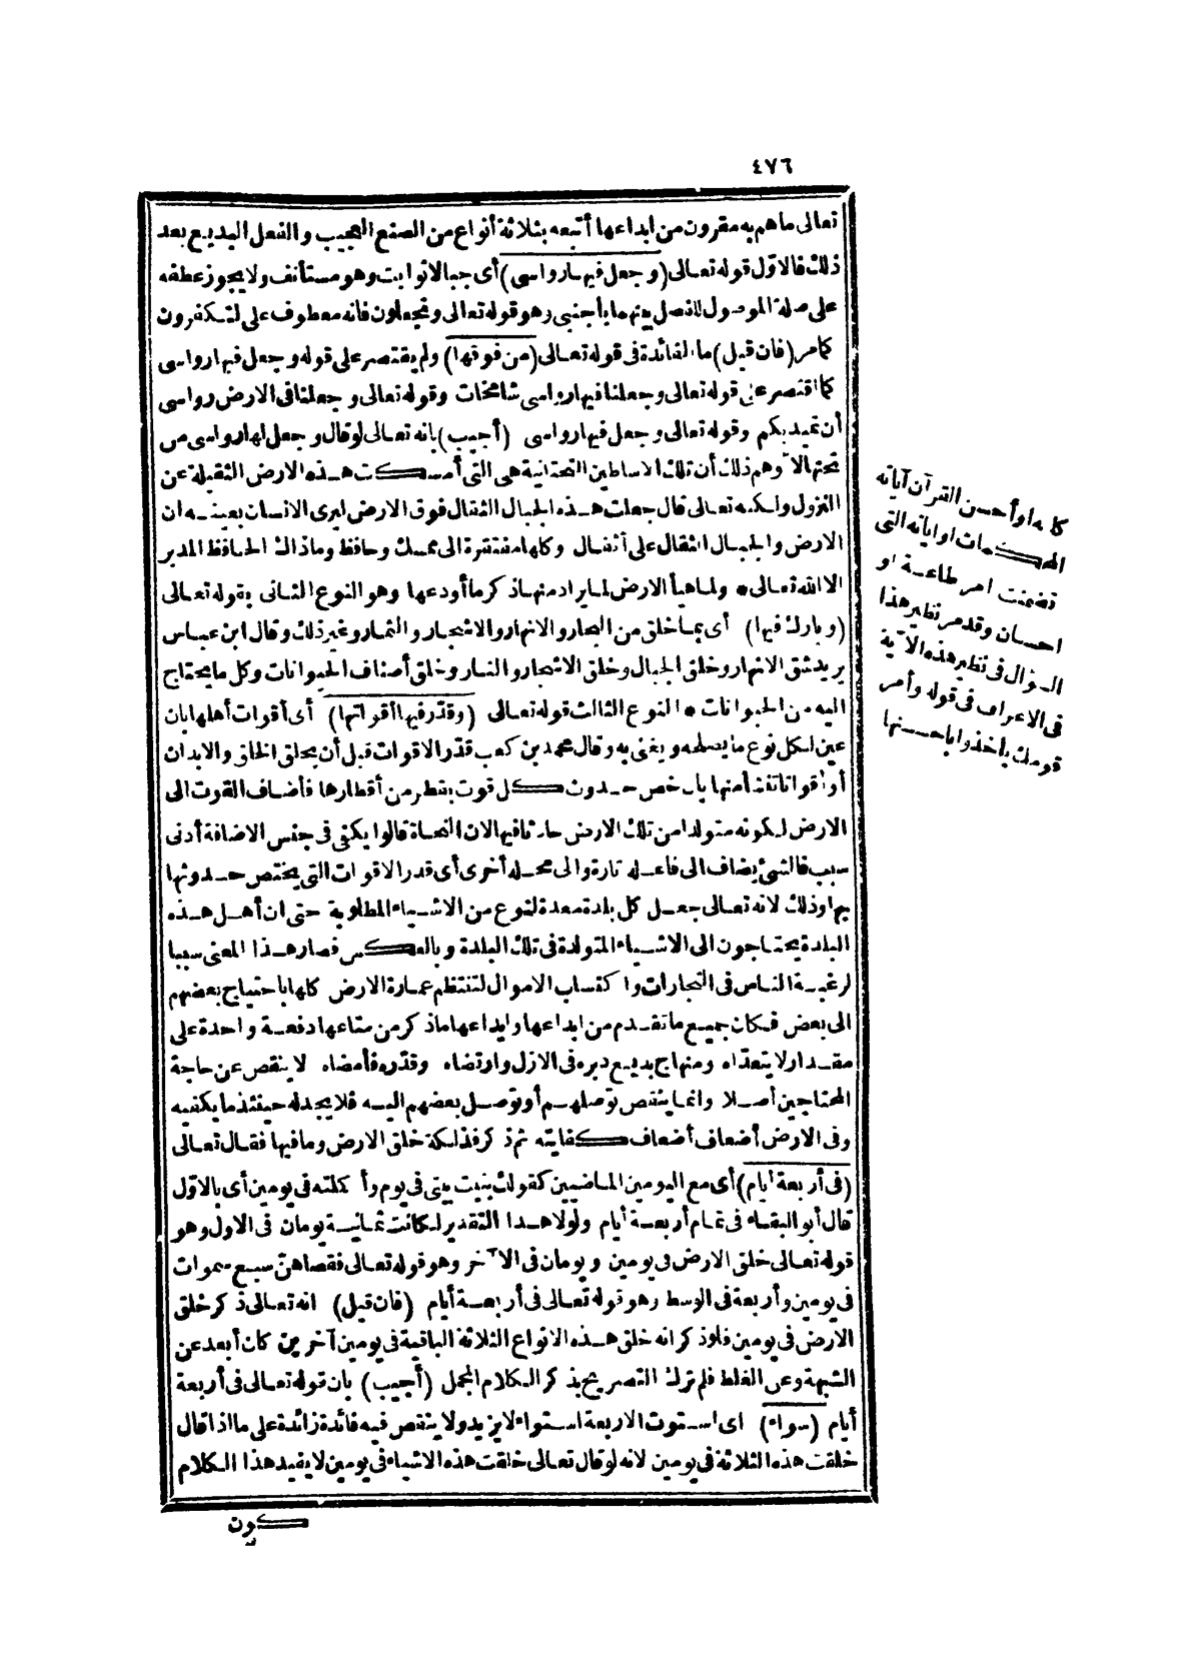 ٤٧٦
تعالى ما هم به مقرون من ابداعها أتبعه بثلاثة أنواع من الصنع العجيب والفعل البديع بعد
ذلك فالاوّل قوله تعالى (وجعل فيها رواسى) أى جبالا ثوابت وهو مستأنف ولا يجوز عطفه
على صلة الموصول للفصل بينهما بأجنبى وهو قوله تعالى وتجعلون فانه معطوف على لتكفرون
كما مر (فان قيل) ما الفائدة فى قوله تعالى (من فوقها) ولم يقتصر على قوله وجعل فيها رواسى
كما اقتصر على قوله تعالى وجعلنا فيها رواسى شامخات وقوله تعالى وجعلنا فى الارض رواسى
أن تميد بكم وقوله تعالى وجعل فيها رواسى (أجيب) بانه تعالى لو قال وجعل لها رواسى من
تحتها لا وهم ذلك أن تلك الاساطين التحتانية هى التى أمسكت هذه الارض الثقيلة عن
النزول ولكنه تعالى قال جعلت هذه الجبال الثقال فوق الارض ليرى الانسان بعينه ان
الارض والجبال اثقال على أثقال وكلها مفتقرة الى ممسك وحافظ وما ذاك الحافظ المدبر
الا الله تعالى * ولما هيأ الارض لما يراد منها ذكر ما أودعها وهو النوع الثانى بقوله تعالى
(وبارك فيها) أى بما خلق من البحار والانهار والاشجار والثمار وغير ذلك وقال ابن عباس
يريد شق الانهار وخلق الجبال وخلق الاشجار والثمار وخلق أصناف الحيوانات وكل ما يحتاج
اليه من الحيوانات * النوع الثالث قوله تعالى (وقدّر فيها أقواتها) أى أقوات أهلها بان
عين لكل نوع ما يصلحه ويغنى به وقال محمد بن كعب قدّر الاقوات قبل أن يخلق الخلق والابدان
أو أقواتا تنشأ منها بان خص حدوث كل قوت بقطر من أقطارها فأضاف القوت الى
الارض لكونه متولدا من تلك الارض حادثا فيها لان النحاة قالوا يكفى فى جنس الاضافة أدنى
سبب فالشئ يضاف الى فاعله تارة والى محله أخرى أى قدر الاقوات التى يختص حدوثها
بها وذلك لانه تعالى جعل كل بلدة معدة لنوع من الاشياء المطلوبة حتى ان أهل هذه
البلدة يحتاجون الى الاشياء المتولدة فى تلك البلدة وبالعكس فصار هذا المعنى سببا
لرغبة الناس فى التجارات واكتساب الاموال لتنتظم عمارة الارض كلها باحتياج بعضهم
الى بعض فكان جميع ما تقدم من ابداعها وايداعها ما ذكر من متاعها دفعة واحدة على
مقدار لا يتعدّاه ومنهاج بديع دبره فى الازل وارتضاه وقدّره فأمضاه لا ينقص عن حاجة
المحتاجين أصلا وانما ينقص توصلهم أو توصل بعضهم اليه فلا يجد له حينئذ ما يكفيه
وفى الارض أضعاف أضعاف كفايته ثم ذكر فذلكة خلق الارض وما فيها فقال تعالى
(فى أربعة أيام) أى مع اليومين الماضيين كقولك بنيت بيتى فى يوم وأكملته فى يومين أى بالاوّل
قال أبو البقاء فى تمام أربعة أيام ولولا هذا التقدير لكانت ثمانية يومان فى الاول وهو
قوله تعالى خلق الارض فى يومين ويومان فى الآخر وهو قوله تعالى فقضاهنّ سبع سموات
فى يومين وأربعة فى الوسط وهو قوله تعالى فى أربعة أيام (فان قيل) انه تعالى ذكر خلق
الارض فى يومين فلو ذكر انه خلق هذه الانواع الثلاثة الباقية فى يومين آخرين كان أبعد عن
الشبهة وعن الغلط فلم ترك التصريح بذكر الكلام المجمل (أجيب) بان قوله تعالى فى أربعة
أيام (سواء) اى استوت الاربعة استواء لا يزيد ولا ينقص فيه فائدة زائدة على ما اذا قال
خلقت هذه الثلاثة فى يومين لانه لو قال تعالى خلقت هذه الاشياء فى يومين لا يفيد هذا الكلام
كون
كله او أحسن القرآن آياته
المحكمات او اياته التى
تضمنت امر طاعة او
احسان وقد مر نظير هذا
السؤال فى نظير هذه الآية
فى الاعراف فى قوله وأمر
قومك يأخذوا باحسنها